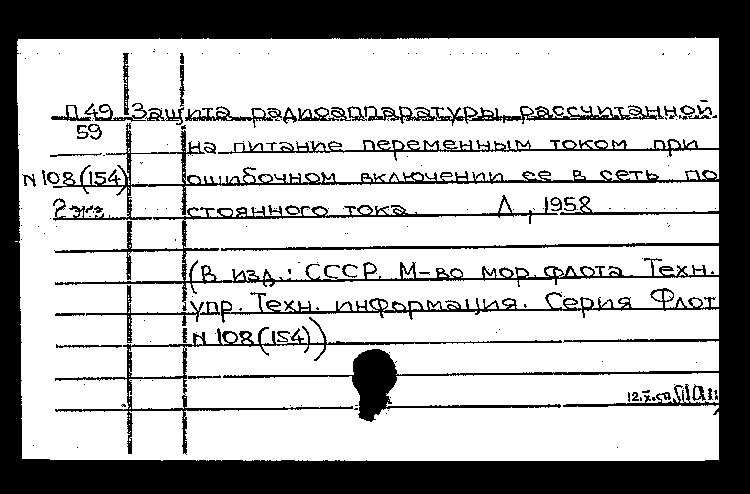 П 49 Защита радиоаппаратуры, рассчитанной
59
на питание переменным током при
N 108 (154) ошибочном включении ее в сеть по
2 экз стоянного тока. Л, 1958
(В изд.: СССР. М-во мор. флота. Техн.
упр. Техн. информация. Серия Флот
N 108 (154))